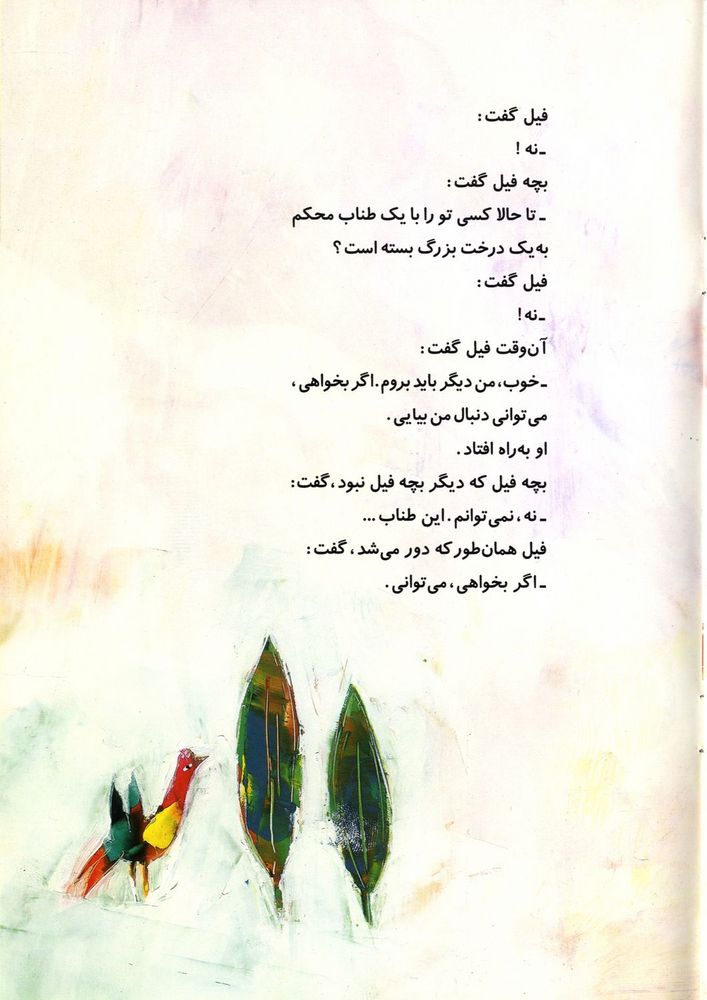 فیل گفت:
ـ نه !
بچه فیل گفت:
ـ تا حالا کسی تو را با یک طناب محکم
به‌یک درخت بزرگ بسته است؟
فیل گفت:
ـ نه!
آن‌وقت فیل گفت:
ـ خوب، من دیگر باید بروم. اگر بخواهی،
می‌توانی دنبال من بیایی.
او به‌راه افتاد.
بچه فیل که دیگر بچه فیل نبود، گفت:
ـ نه، نمی‌توانم. این طناب ...
فیل همان‌طور که دور می‌شد، گفت:
ـ اگر بخواهی، می‌توانی.